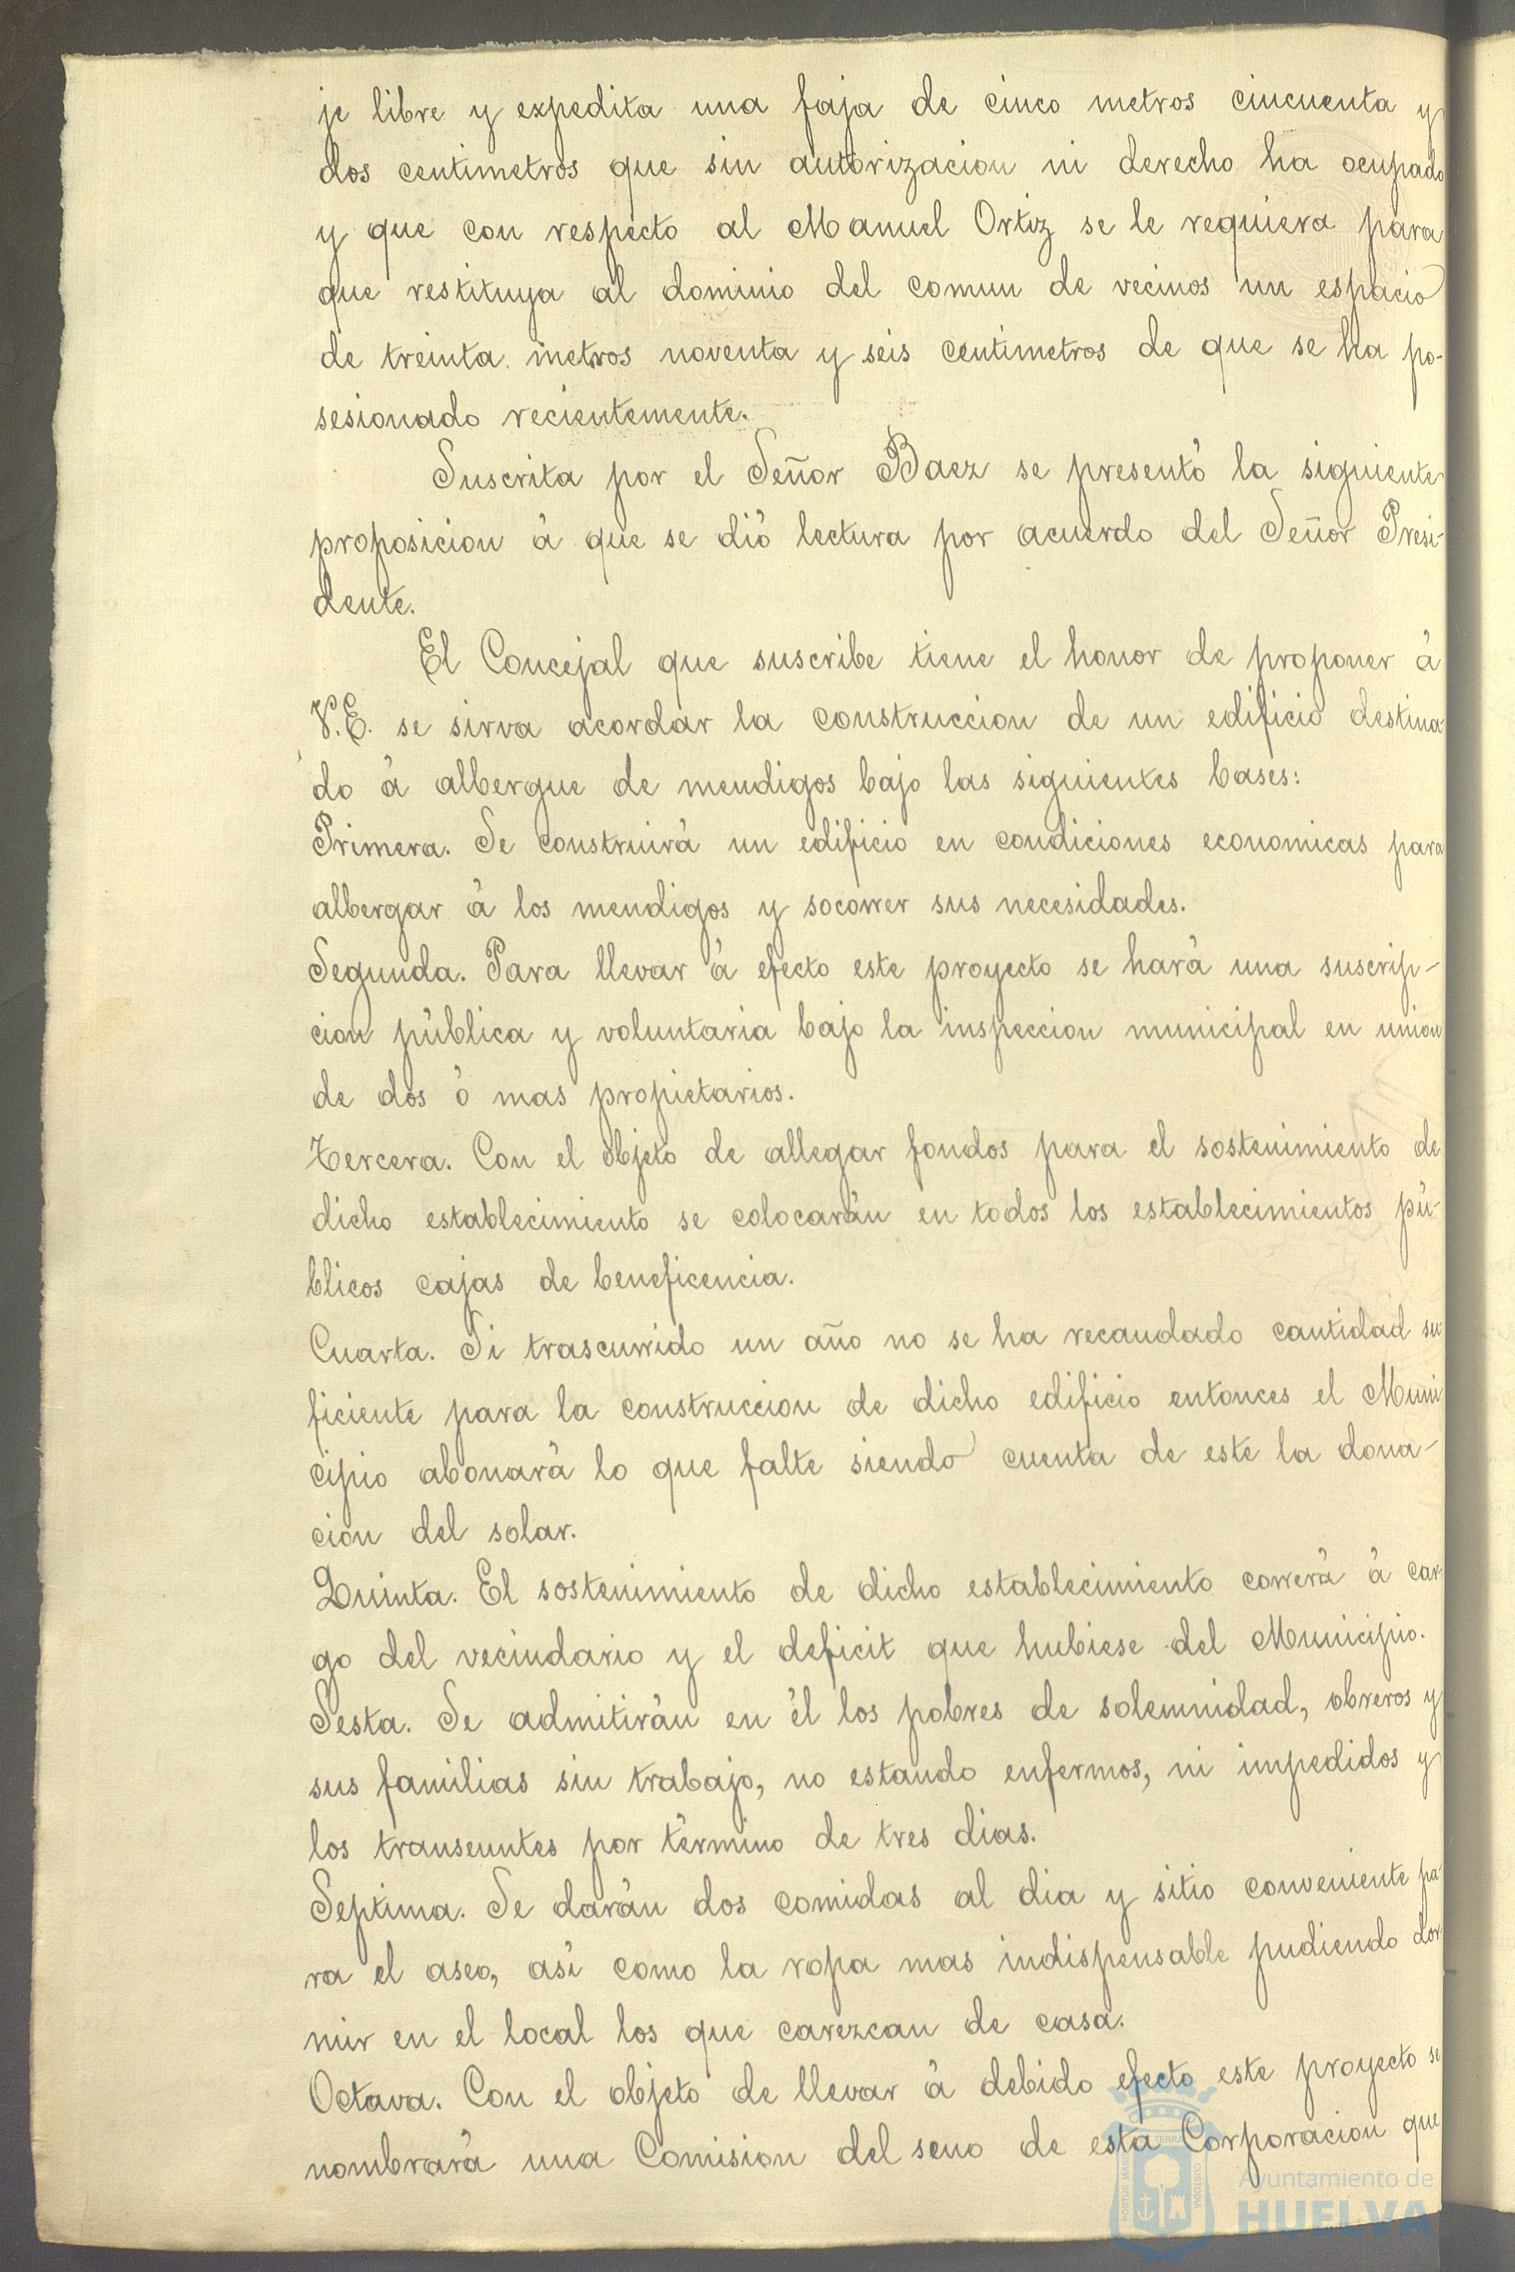 je libre y expedita una faja de cinco metros cincuenta y
dos centimetros que sin autorizacion ni derecho ha ocupado
y que con respecto al Manuel Ortiz se le requiera para
que restituya al dominio del comun de vecinos un espacio
de treinta metros noventa y seis centimetros de que se ha po-
sesionado recientemente.
Suscrita por el Señor Baez se presentó la siguiente
proposicion á que se dió lectura por acuerdo del Señor Presi-
dente.
El Concejal que suscribe tiene el honor de proponer á
V.E. se sirva acordar la construccion de un edificio destina-
do á albergue de mendigos bajo las siguientes bases:
Primera. Se construirá un edificio en condiciones economicas para
albergar á los mendigos y socorrer sus necesidades.
Segunda. Para llevar á efecto este proyecto se hará una suscrip-
cion pública y voluntaria bajo la inspeccion municipal en union
de dos ó mas propietarios.
Tercera. Con el objeto de allegar fondos para el sostenimiento de
dicho establecimiento se colocarán en todos los establecimientos pú-
blicos cajas de beneficencia.
Cuarta. Si trascurrido un año no se ha recaudado cantidad su
ficiente para la construccion de dicho edificio entonces el Muni
cipio abonará lo que falte siendo cuenta de este la dona-
cion del solar.
Quinta. El sostenimiento de dicho establecimiento correrá á car-
go del vecindario y el deficit que hubiese del Municipio.
Sesta. Se admitirán en él los pobres de solemnidad, obreros y
sus familias sin trabajo, no estando enfermos, ni impedidos y
los transeuntes por término de tres dias.
Septima. Se darán dos comidas al dia y sitio conveniente pa-
ra el aseo, asi como la ropa mas indispensable pudiendo dor-
mir en el local los que carezcan de casa.
Octava. Con el objeto de llevar á debido efecto este proyecto se
nombrará una Comision del seno de esta Corporacion que
Ayuntamiento de
HUELVA